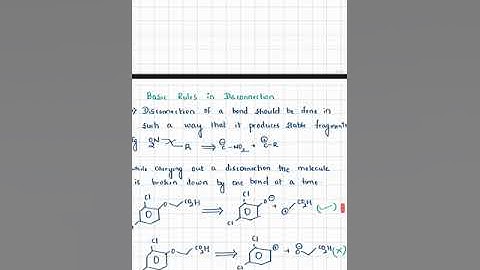 Basic Rules in Disconnection
Disconnection of a bond should be done in
such a way that it produces stable fragments
Eg O2N R ⇒ C-NO2 + C-R
while carrying out a disconnection the molecule
is broken down by one bond at a time
Cl O CO2H ⇒ Cl O⊖ + ⊕ CO2H (✓)
Cl
Cl
Cl O CO2H ⇒ Cl ⊕ + ⊖O CO2H (×)
Cl
Cl